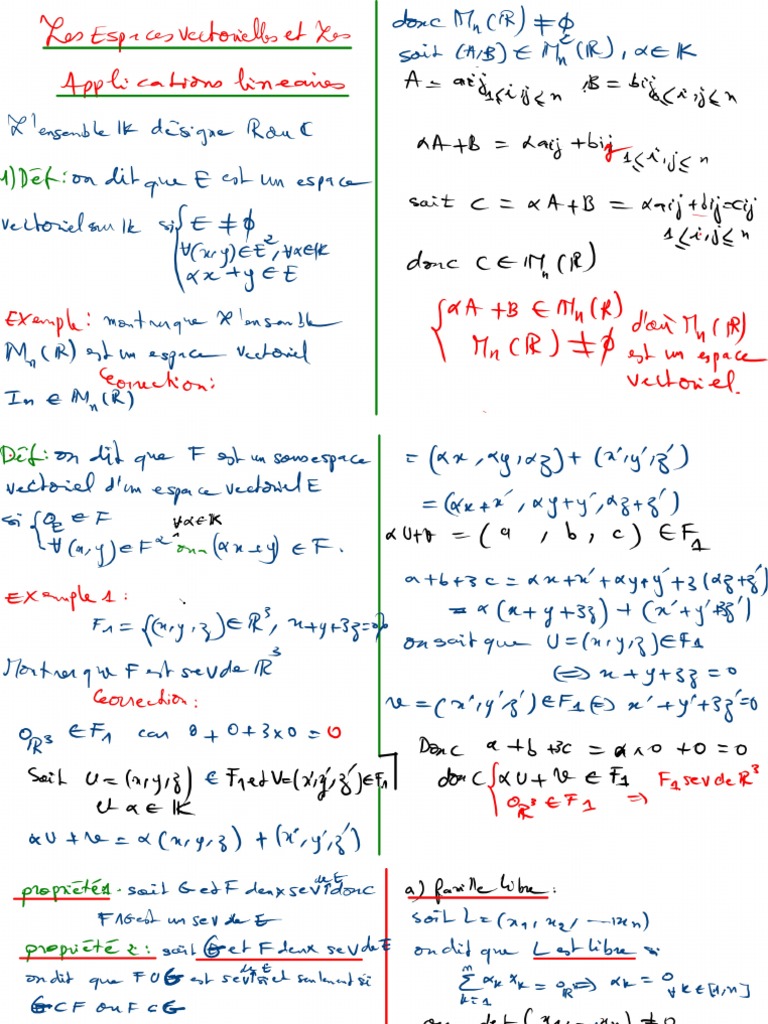 Les Espaces vectorielles et Les
Applications lineaires
L'ensemble IK désigne R ou C
1) Déf: on dit que E est un espace
vectoriel sur IK si { E ≠ ∅
∀(x,y) ∈ E², ∀α∈IK
αx + y ∈ E
Exemple: montrer que L'ensemble
Mn(R) est un espace vectoriel
Correction:
In ∈ Mn(R)
donc Mn(R) ≠ ∅
soit (A,B) ∈ Mn²(R), α ∈ IK
A = aij 1≤i,j≤n B = bij 1≤i,j≤n
αA + B = αaij + bij 1≤i,j≤n
soit C = αA + B = αaij + bij = cij
1≤i,j≤n
donc C ∈ Mn(R)
{ αA + B ∈ Mn(R)
Mn(R) ≠ ∅
d'où Mn(R)
est un espace
vectoriel.
Déf: on dit que F est un sous espace
vectoriel d'un espace vectoriel E
si { 0E ∈ F ∀α∈IK
∀(x,y) ∈ F² on a (αx+y) ∈ F.
Exemple 1:
F1 = {(x,y,z) ∈ R³, x+y+3z=0}
Montrer que F est sev de R³
Correction:
0R³ ∈ F1 car 0 + 0 + 3×0 = 0
Soit U = (x,y,z) ∈ F1 et V = (x',y',z') ∈ F1
et α ∈ IK
αU + v = α(x,y,z) + (x',y',z')
= (αx, αy, αz) + (x',y',z')
= (αx+x', αy+y', αz+z')
αU+v = (a, b, c) ∈ F1
a+b+3c = αx+x' + αy+y' + 3(αz+z')
= α(x+y+3z) + (x'+y'+3z')
on sait que U = (x,y,z) ∈ F1
⟺ x+y+3z = 0
v = (x',y',z') ∈ F1 ⟺ x'+y'+3z'=0
Donc a+b+3c = α×0 + 0 = 0
donc { αU + v ∈ F1
0R³ ∈ F1 ⟹ F1 sev de R³
propriété 1. soit G et F deux sev de E donc
F∩G est un sev de E
propriété 2: soit G et F deux sev de E
on dit que F∪G est sev de E si et seulement si
G⊂F ou F⊂G
a) famille libre:
soit L = (x1, x2, ---- xn)
on dit que L est libre si
∑ k=1 n αk xk = 0R³ ⟹ αk = 0 ∀k∈[1,n]